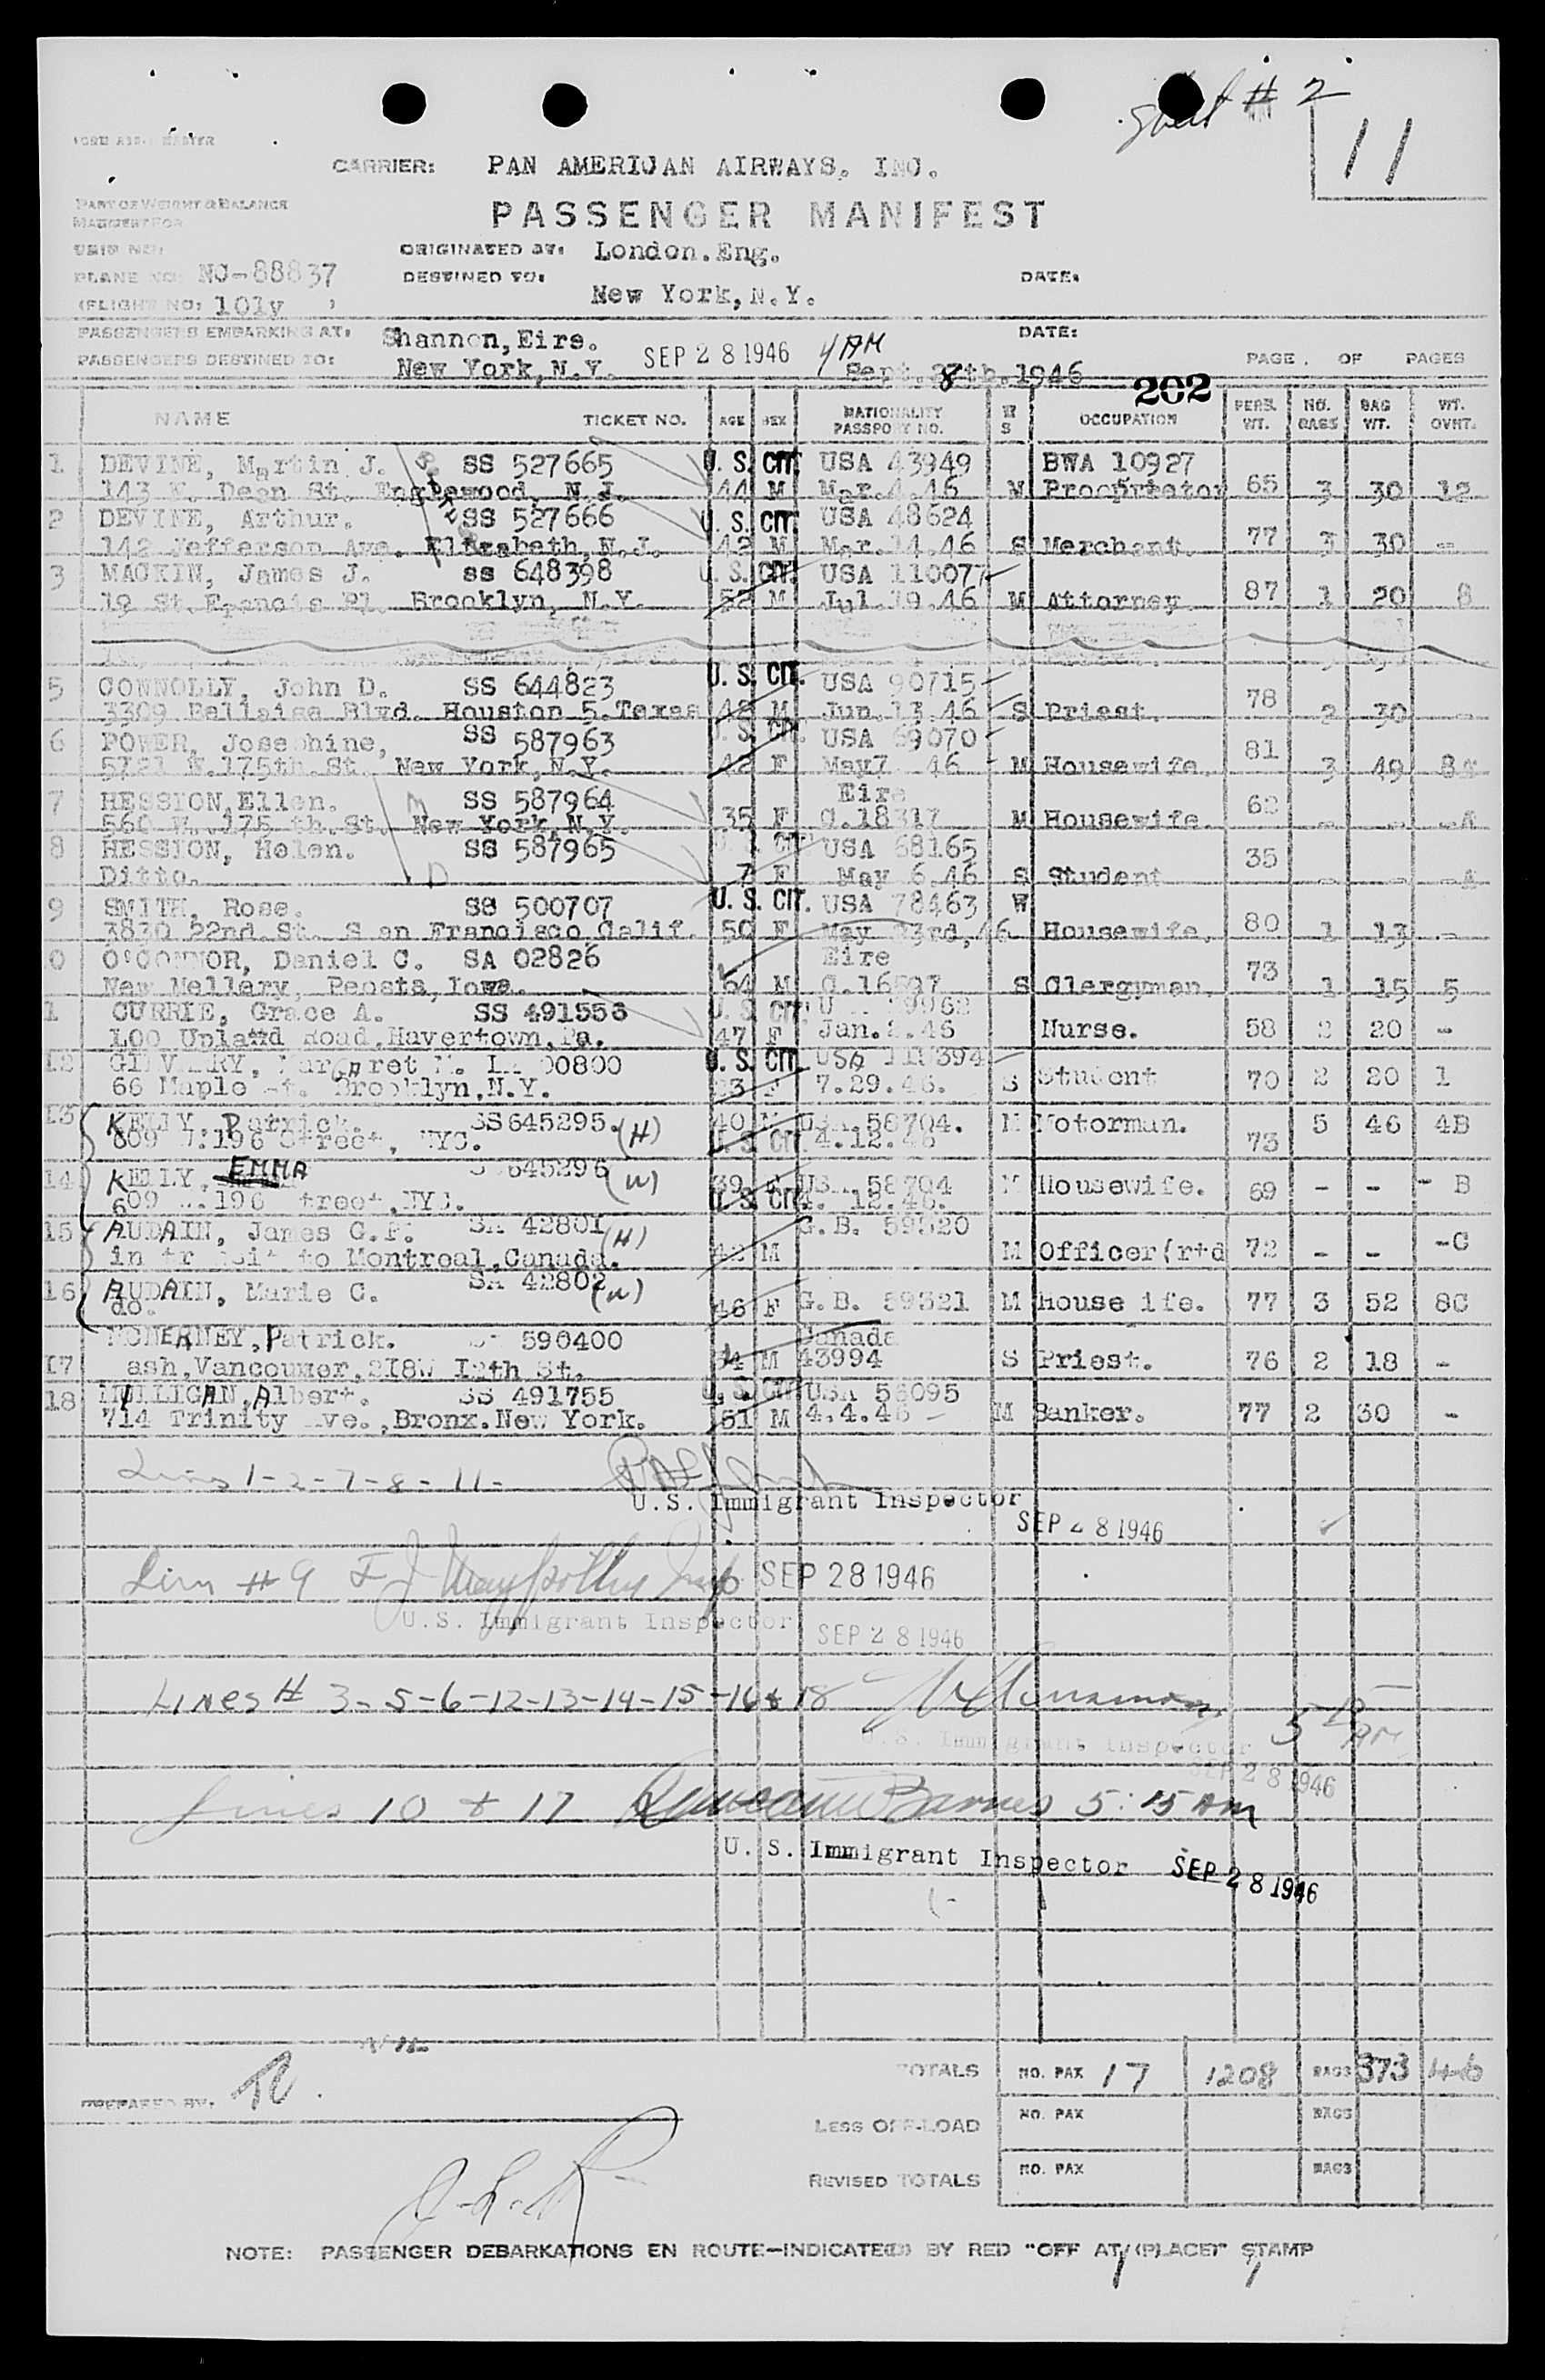 # 2
11
CARRIER: PAN AMERICAN AIRWAYS. INC.
PART OF WEIGHT & BALANCE
PASSENGER MANIFEST
ORIGINATED AT: London.Eng.
PLANE NO: NC-88837 DESTINED TO: DATE:
New York,N.Y.
(FLIGHT NO: 101y )
PASSENGERS EMBARKING AT: Shannon,Eire. DATE:
PASSENGERS DESTINED TO: New York,N.Y. SEP 28 1946 4 AM Sept.28th.1946 PAGE OF PAGES
202
NAME TICKET NO. AGE SEX NATIONALITY PASSPORT NO. W S OCCUPATION PERS. WT. NO. BAGS BAG WT. WT. OVHT.
1 DEVINE, Martin J. SS 527665 U. S. CIT. USA 43949 BWA 10927
143 E. Dean St. Englewood, N.J. 44 M Mar.4.46 M Proprietor 65 3 30 12
2 DEVINE, Arthur. SS 527666 U. S. CIT. USA 48624
142 Jefferson Ave. Elizabeth,N.J. 42 M Mar.14.46 S Merchant. 77 3 30 -
3 MACKIN, James J. SS 648398 U. S. CIT. USA 110077
19 St.Francis Pl. Brooklyn, N.Y. 52 M Jul.19.46 M Attorney. 87 1 20 8
5 CONNOLLY, John D. SS 644823 U. S. CIT. USA 90715
3309 Bellaire Blvd. Houston 5.Texas 42 M Jun.13.46 S Priest. 78 2 30 -
6 POWER, Josephine, SS 587963 U. S. CIT. USA 69070
5721 W.175th.St. New York,N.Y. 42 F May7 46 M Housewife. 81 3 49 8A
7 HESSION,Ellen. SS 587964 Eire
560 W. 175 th.St. New York,N.Y. 35 F C.18317 M Housewife. 62 - - -A
8 HESSION, Helen. SS 587965 CIT USA 68165
Ditto. D 7 F May 6.46 S Student 35 - - -A
9 SMITH, Rose. SS 500707 U. S. CIT. USA 78463 W
3830 22nd.St. San Francisco.Calif. 50 F May 23rd,46 Housewife. 80 1 13 -
0 O'CONNOR, Daniel C. SA 02826 Eire
New Mellery, Peosta,Iowa. 64 M C.16597 S Clergyman, 73 1 15 5
1 CURRIE, Grace A. SS 491556 U. S. CIT. U 79962
100 Upland Road.Havertown,Pa. 47 F Jan.2.46 Nurse. 58 2 20 -
12 Margaret M. 00800 U. S. CIT. USA 111394
66 Maple St. Brooklyn,N.Y. 23 F 7.29.46. S Student 70 2 20 1
13 KELLY, Patrick. SS645295. (H) 40 M USA.58704. M Motorman. 5 46 4B
609 W.196 Street, NYC. U. S. CIT. 4.12.46 73
14 KELLY, EMMA 645296 (W) 39 F USA 58704 M Housewife. 69 - - - B
609 W.196 treet,NYC. U. S. CIT. 4. 12.46.
15 AUDAIN, James G.P. SA 42801 (H) G.B. 59320
in transit to Montreal,Canada. 42 M M Officer(rtd 72 - - -C
16 AUDAIN, Marie C. SA 42802 (W)
do. 46 F G.B. 59321 M House ife. 77 3 52 8C
MCNERNEY,Patrick. 590400 Canada
17 ash,Vancouver,218W 12th St. 34 M 43994 S Priest. 76 2 18 -
18 MULLIGAN,Albert. SS 491755 U. S. CIT USA 56095
714 Trinity Ave.,Bronx.New York. 51 M 4.4.46 - M Banker. 77 2 30 -
Lines 1-2-7-8-11-
U.S. Immigrant Inspector
SEP 28 1946
Line # 9 SEP 28 1946
U.S. Immigrant Inspector SEP 28 1946
LINES # 3-5-6-12-13-14-15-16 & 18
U.S. Immigrant Inspector 5 AM
SEP 28 1946
Lines 10 + 17 Barnes 5:15 AM
U. S. Immigrant Inspector SEP 28 1946
TOTALS NO. PAX 17 1208 BAGS 373 46
PREPARED BY:
LESS OFF-LOAD NO. PAX BAGS
REVISED TOTALS NO. PAX BAGS
NOTE: PASSENGER DEBARKATIONS EN ROUTE-INDICATE(D) BY RED "OFF AT/(PLACE)" STAMP